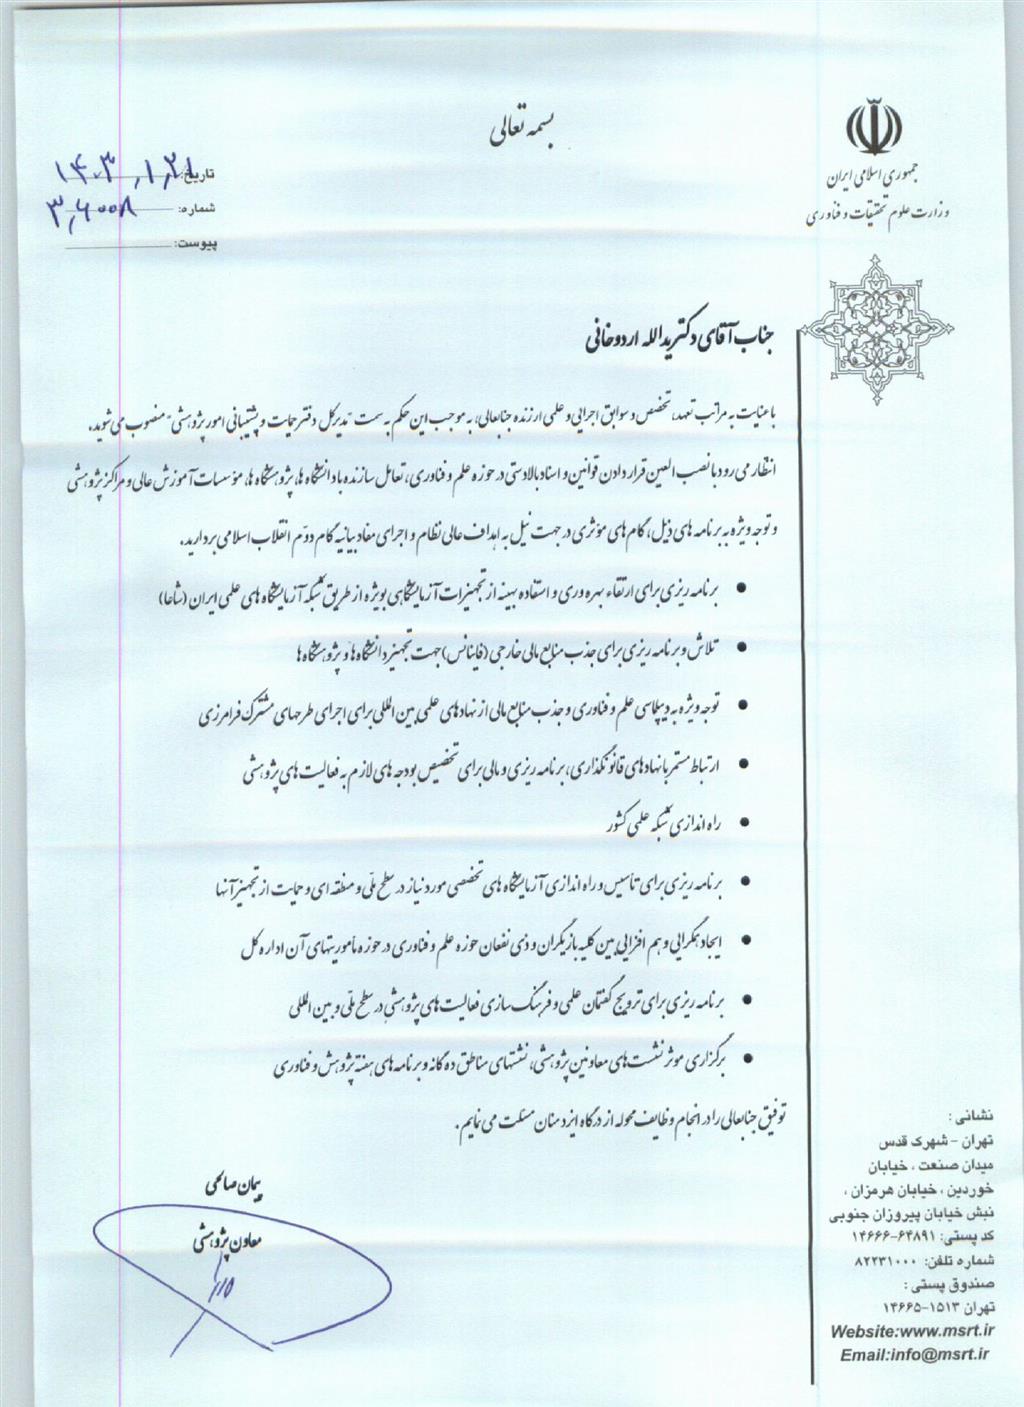 بسمه تعالی
جمهوری اسلامی ایران
وزارت علوم تحقیقات و فناوری
تاریخ: ۱۴۰۳,۱,۲۱
شماره: ۳,۶۰۰۸
پیوست:
جناب آقای دکتر یدالله اردوخانی
با عنایت به مراتب تعهد، تخصص و سوابق اجرایی و علمی ارزنده جنابعالی، به موجب این حکم به سمت "مدیرکل دفتر حمایت و پشتیبانی امور پژوهشی" منصوب می شوید.
انتظار می رود با نصب العین قرار دادن قوانین و اسناد بالادستی در حوزه علم و فناوری، تعامل سازنده با دانشگاه ها، پژوهشگاه ها، مؤسسات آموزش عالی و مراکز پژوهشی
و توجه ویژه به برنامه های ذیل، گام های مؤثری در جهت نیل به اهداف عالی نظام و اجرای مفاد بیانیه گام دوّم انقلاب اسلامی بردارید.
• برنامه ریزی برای ارتقاء بهره وری و استفاده بهینه از تجهیزات آزمایشگاهی بویژه از طریق شبکه آزمایشگاه های علمی ایران (شاعا)
• تلاش و برنامه ریزی برای جذب منابع مالی خارجی (فاینانس) جهت تجهیز دانشگاه ها و پژوهشگاه ها
• توجه ویژه به دیپلماسی علم و فناوری و جذب منابع مالی از نهادهای علمی بین المللی برای اجرای طرحهای مشترک فرامرزی
• ارتباط مستمر با نهادهای قانونگذاری، برنامه ریزی و مالی برای تخصیص بودجه های لازم به فعالیت های پژوهشی
• راه اندازی شبکه علمی کشور
• برنامه ریزی برای تاسیس و راه اندازی آزمایشگاه های تخصصی مورد نیاز در سطح ملّی و منطقه ای و حمایت از تجهیز آنها
• ایجاد همگرائی و هم افزایی بین کلیه بازیگران و ذی نفعان حوزه علم و فناوری در حوزه مأموریتهای آن اداره کل
• برنامه ریزی برای ترویج گفتمان علمی و فرهنگ سازی فعالیت های پژوهشی در سطح ملّی و بین المللی
• برگزاری موثر نشست های معاونین پژوهشی، نشستهای مناطق ده گانه و برنامه های هفته پژوهش و فناوری
توفیق جنابعالی را در انجام وظایف محوله از درگاه ایزد منان مسئلت می نمایم.
پیمان صالحی
معاون پژوهشی
نشانی :
تهران - شهرک قدس
میدان صنعت ، خیابان
خوردین ، خیابان هرمزان ،
نبش خیابان پیروزان جنوبی
کد پستی: ۶۴۸۹۱-۱۴۶۶۶
شماره تلفن: ۸۲۲۳۱۰۰۰
صندوق پستی :
تهران ۱۵۱۳-۱۴۶۶۵
Website:www.msrt.ir
Email:info@msrt.ir